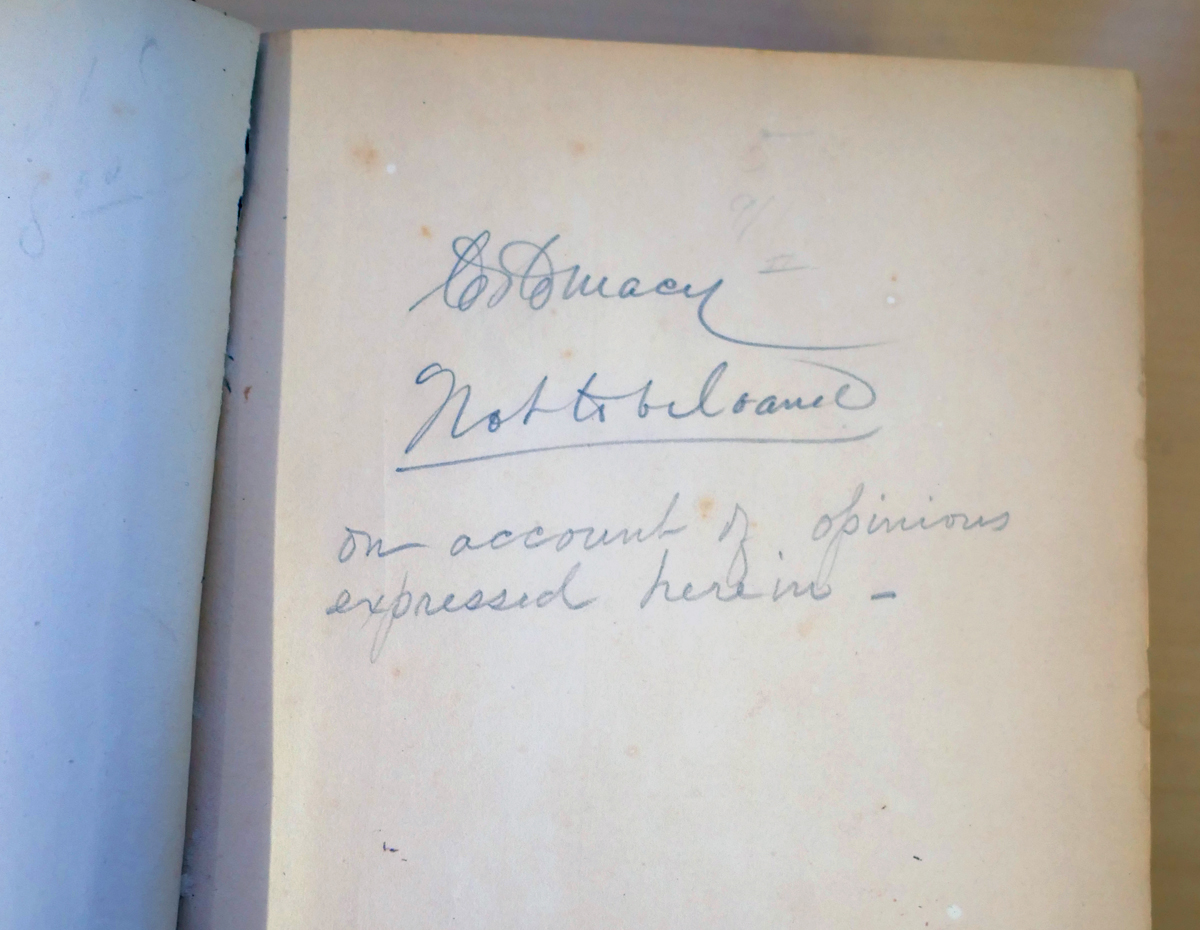 Macy
Not to be loaned
on account of opinions
expressed herein -